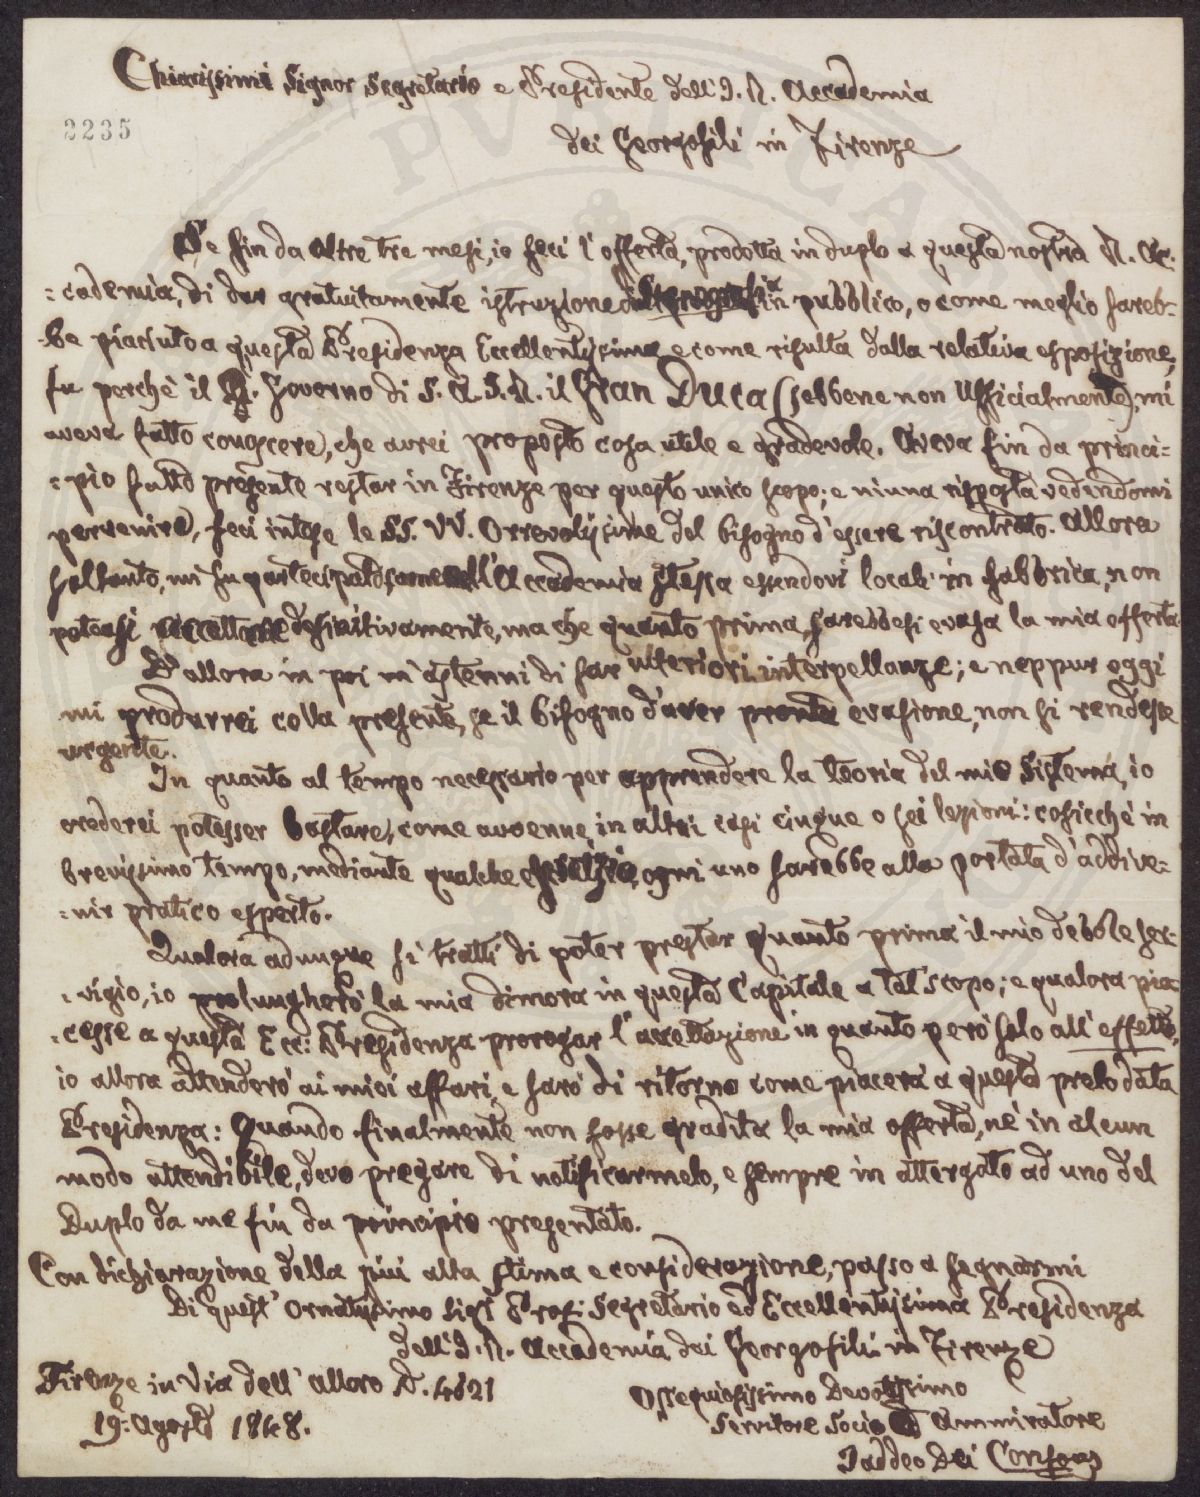 Chiarissimi Signor Segretario e Presidente dell'I. R. Accademia
2235
dei Georgofili in Firenze
Se fin da oltre tre mesi, io feci l'offerta, prodotta in duplo a questa nostra R. Ac:
:cademia, di dar gratuitamente istruzione in pubblico, o come meglio sareb:
:be piaciuto a questa Presidenza Eccellentissima e come risulta dalla relativa esposizione,
fu perchè il R. Governo di S. A. I. R. il Gran Duca (sebbene non Ufficialmente), mi
aveva fatto conoscere, che avrei proposto cosa utile e gradevole. Aveva fin da princi:
:pio fatto presente restar in Firenze per questo unico scopo; e niuna risposta vedendomi
pervenire, feci intese le SS. VV. Orrevolissime del bisogno d'essere riscontrato. Allora
soltanto, mi fu partecipato, Accademia stessa essendovi locali in fabbrica, non
poteasi accettare definitivamente, ma che quanto prima, sarebbesi evasa la mia offerta.
D'allora in poi m'astenni di far ulteriori interpellanze; e neppur oggi
mi produrrei colla presente, se il bisogno d'aver pronta evasione, non si rendesse
urgente.
In quanto al tempo necessario per apprendere la teoria del mio Sistema, io
crederei potesser bastare, come avvenne in altri casi cinque o sei lezioni: cosicchè in
brevissimo tempo, mediante qualche esercizio, ogni uno sarebbe alla portata d'addive:
:nir pratico esperto.
Qualora adunque si tratti di poter prestar quanto prima il mio debole ser:
:vigio, io prolungherò la mia dimora in questa Capitale a tal scopo; e qualora pia:
:cesse a questa Ecc: Presidenza prorogar l'accettazione in quanto però solo all'effetto,
io allora attenderò ai miei affari, e sarò di ritorno come piacerà a questa prelodata
Presidenza: Quando finalmente non fosse gradita la mia offerta, nè in alcun
modo attendibile, devo pregare di notificarmelo, e sempre in attergato ad uno del
Duplo da me fin da principio presentato.
Con dichiarazione della più alta stima e considerazione, passo a segnarmi
Di quest'Ornatissimo Sigr Prof. Segretario ed Eccellentissima Presidenza
dell'I. R. Accademia dei Georgofili in Firenze
Firenze in Via dell'alloro N. 4621
Ossequiosissimo Devotissimo
19: Agosto 1848.
Servitore Socio ed Ammiratore
Taddeo Dei Consoni